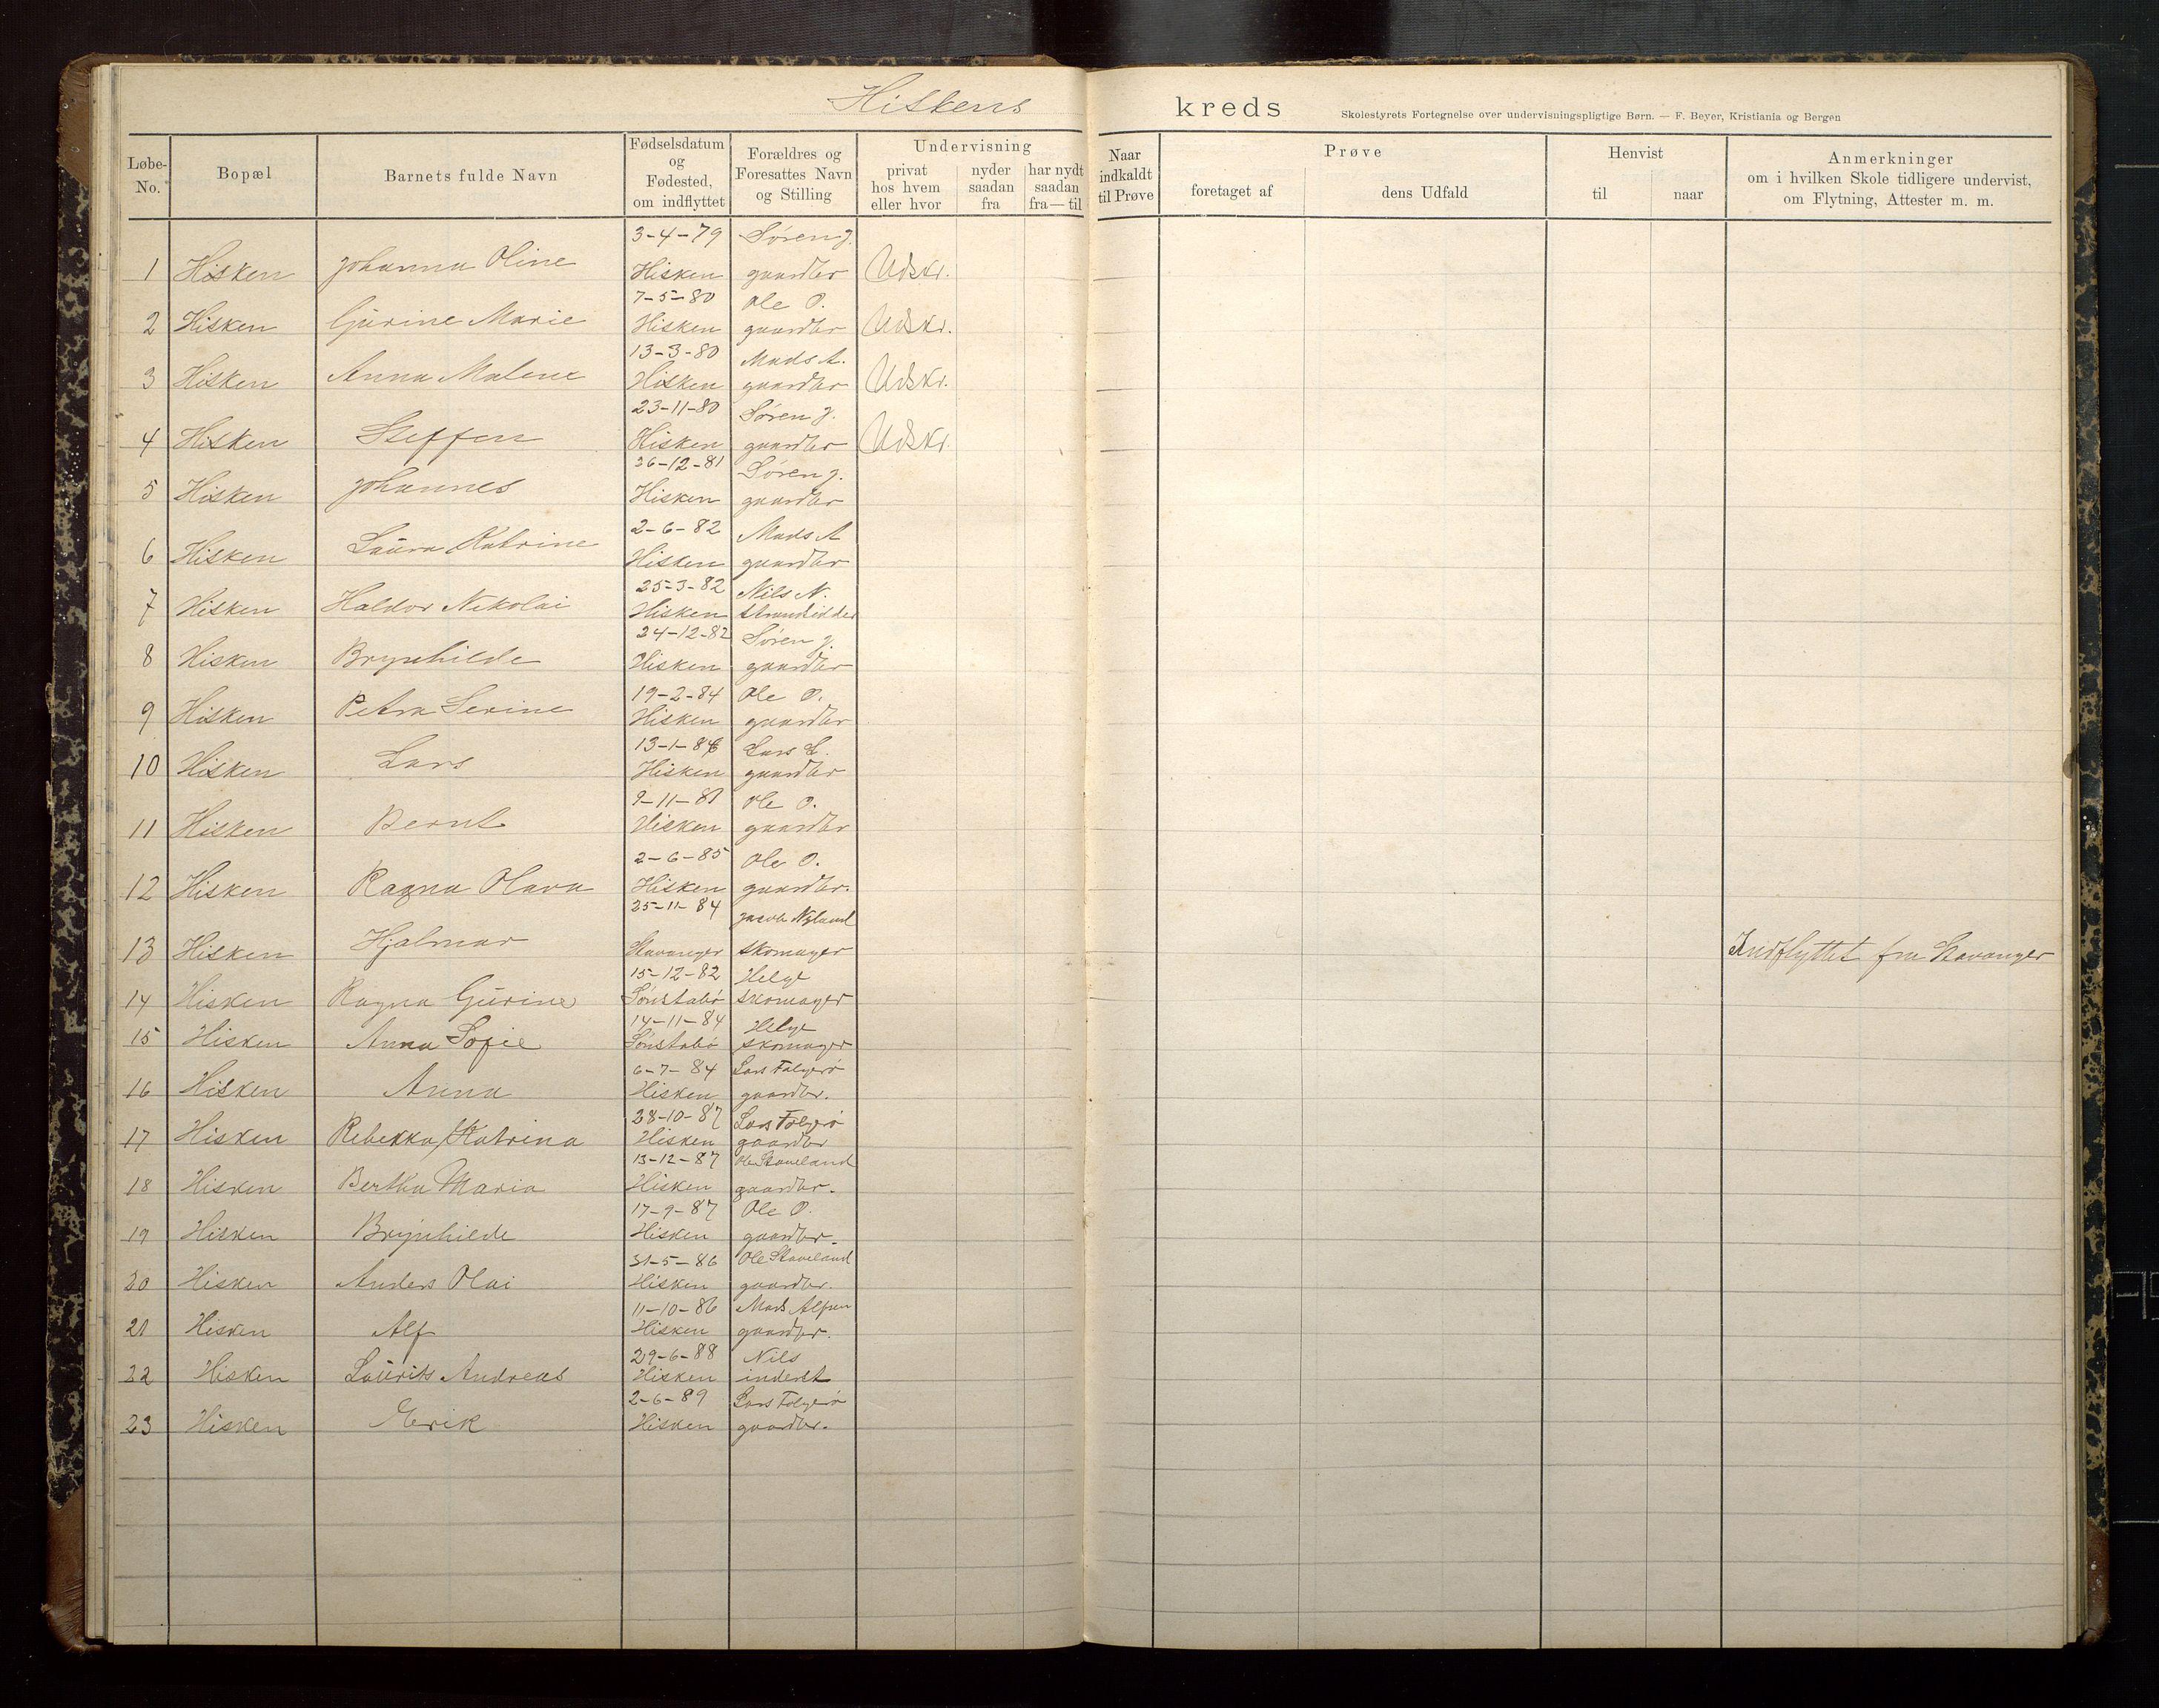 Hiskens kreds
Skolestyrets Fortegnelse over undervisningspligtige Børn. — F. Beyer, Kristiania og Bergen
Løbe-No. Bopæl Barnets fulde Navn Fødselsdatum og Fødested, om indflyttet Forældres og Foresattes Navn og Stilling Undervisning privat hos hvem eller hvor nyder saadan fra har nydt saadan fra — til Naar indkaldt til Prøve Prøve foretaget af dens Udfald Henvist til naar Anmerkninger om i hvilken Skole tidligere undervist, om Flytning, Attester m. m.
3-4-79 Søren J.
1 Hisken Johanna Oline Hisken gaardbr Udskr.
7-5-80 Ole O.
2 Hisken Gürine Marie Hisken gaardbr Udskr.
13-3-80 Mads A.
3 Hisken Anna Malene Hisken gaardbr Udskr.
23-11-80 Søren J.
4 Hisken Steffen Hisken gaardbr Udskr.
26-12-81 Søren J.
5 Hisken Johannes Hisken gaardbr
2-6-82 Mads A
6 Hisken Laüra Katrine Hisken gaardbr
25-3-82 Nils N.
7 Hisken Haldor Nikolai Hisken strandsidder
24-12-82 Søren J.
8 Hisken Brynhilde Hisken gaardbr
19-2-84 Ole O.
9 Hisken Petra Serine Hisken gaardbr
13-1-86 Lars L.
10 Hisken Lars Hisken gaardbr
9-11-81 Ole O.
11 Hisken Bernt Hisken gaardbr
2-6-85 Ole O.
12 Hisken Ragna Olava Hisken gaardbr.
25-11-84 Jacob Nyland
13 Hisken Hjalmar Stavanger skomager Indflyttet fra Stavanger
15-12-82 Helge
14 Hisken Ragna Gürine Sønstabø skomager
14-11-84 Helge
15 Hisken Anna Sofie Sønstabø skomager
6-7-84 Lars Folgerø
16 Hisken Anna Hisken gaardbr.
28-10-87 Lars Folgerø
17 Hisken Rebekka Katrina Hisken gaardbr
13-12-87 Ole Staveland
18 Hisken Bertha Maria Hisken gaardbr.
17-9-87 Ole O.
19 Hisken Brynhilde Hisken gaardbr.
31-5-86 Ole Staveland
20 Hisken Anders Olai Hisken gaardbr.
11-10-86 Mads
21 Hisken Alf Hisken gaardbr.
29-6-88 Nils
22 Hisken Laürits Andreas Hisken inderst
2-6-89 Lars Folgerø
23 Hisken Erik Hisken gaardbr.